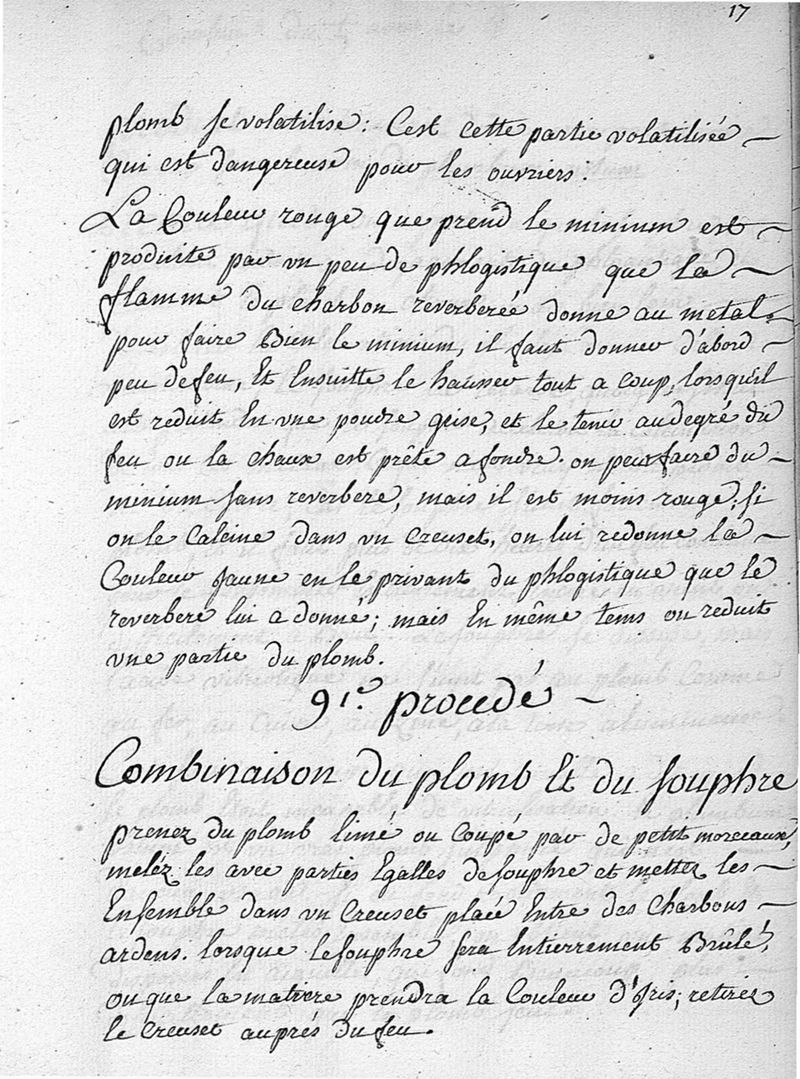 17
plomb se volatilise: C'est cette partie volatilisée –
qui est dangereuse pour les ouvriers.
La Couleur rouge que prend le minium est –
produite par un peu de phlogistique que la –
flamme du charbon reverberée donne au metal.
pour faire Bien le minium, il faut donner d'abord –
peu de feu, Et Ensuitte le hausser tout a coup, lorsqu'il
est reduit En vne poudre grise, et le tenir au degré du
feu ou la chaux est prête a fondre. on peut faire du –
minium sans reverbere, mais il est moins rouge; si
on le Calcine dans vn Creuset, on lui redonne la –
Couleur jaune en le privant du phlogistique que le
reverbere lui a donné; mais En même tems on reduit
vne partie du plomb.
91.e procedé –
Combinaison du plomb Et du souphre
prenez du plomb limé ou Coupé par de petit morceaux,
meléz les avec parties Egalles de souphre et mettez les –
Ensemble dans vn Creuset placé Entre des Charbons –
ardens. lorsque le souphre sera Entierrement Brûlé,
ou que la matiere prendra la Couleur d'Iris; retirez
le Creuset auprés du feu.